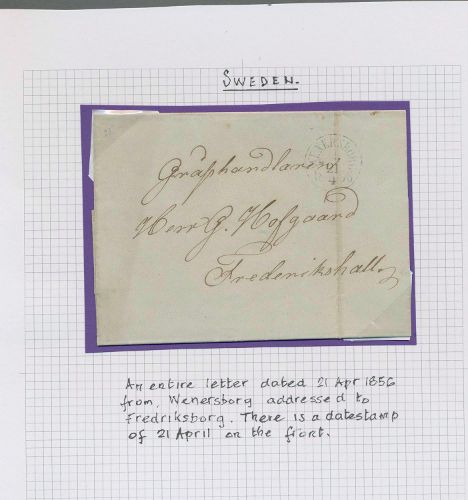 SWEDEN.
WENERSBORG
21
4
Gråshandlaren
Herr G. Hofgaard
Frederikshall
An entire letter dated 21 Apr 1856
from Wenersborg addressed to
Fredriksborg. There is a datestamp
of 21 April on the front.